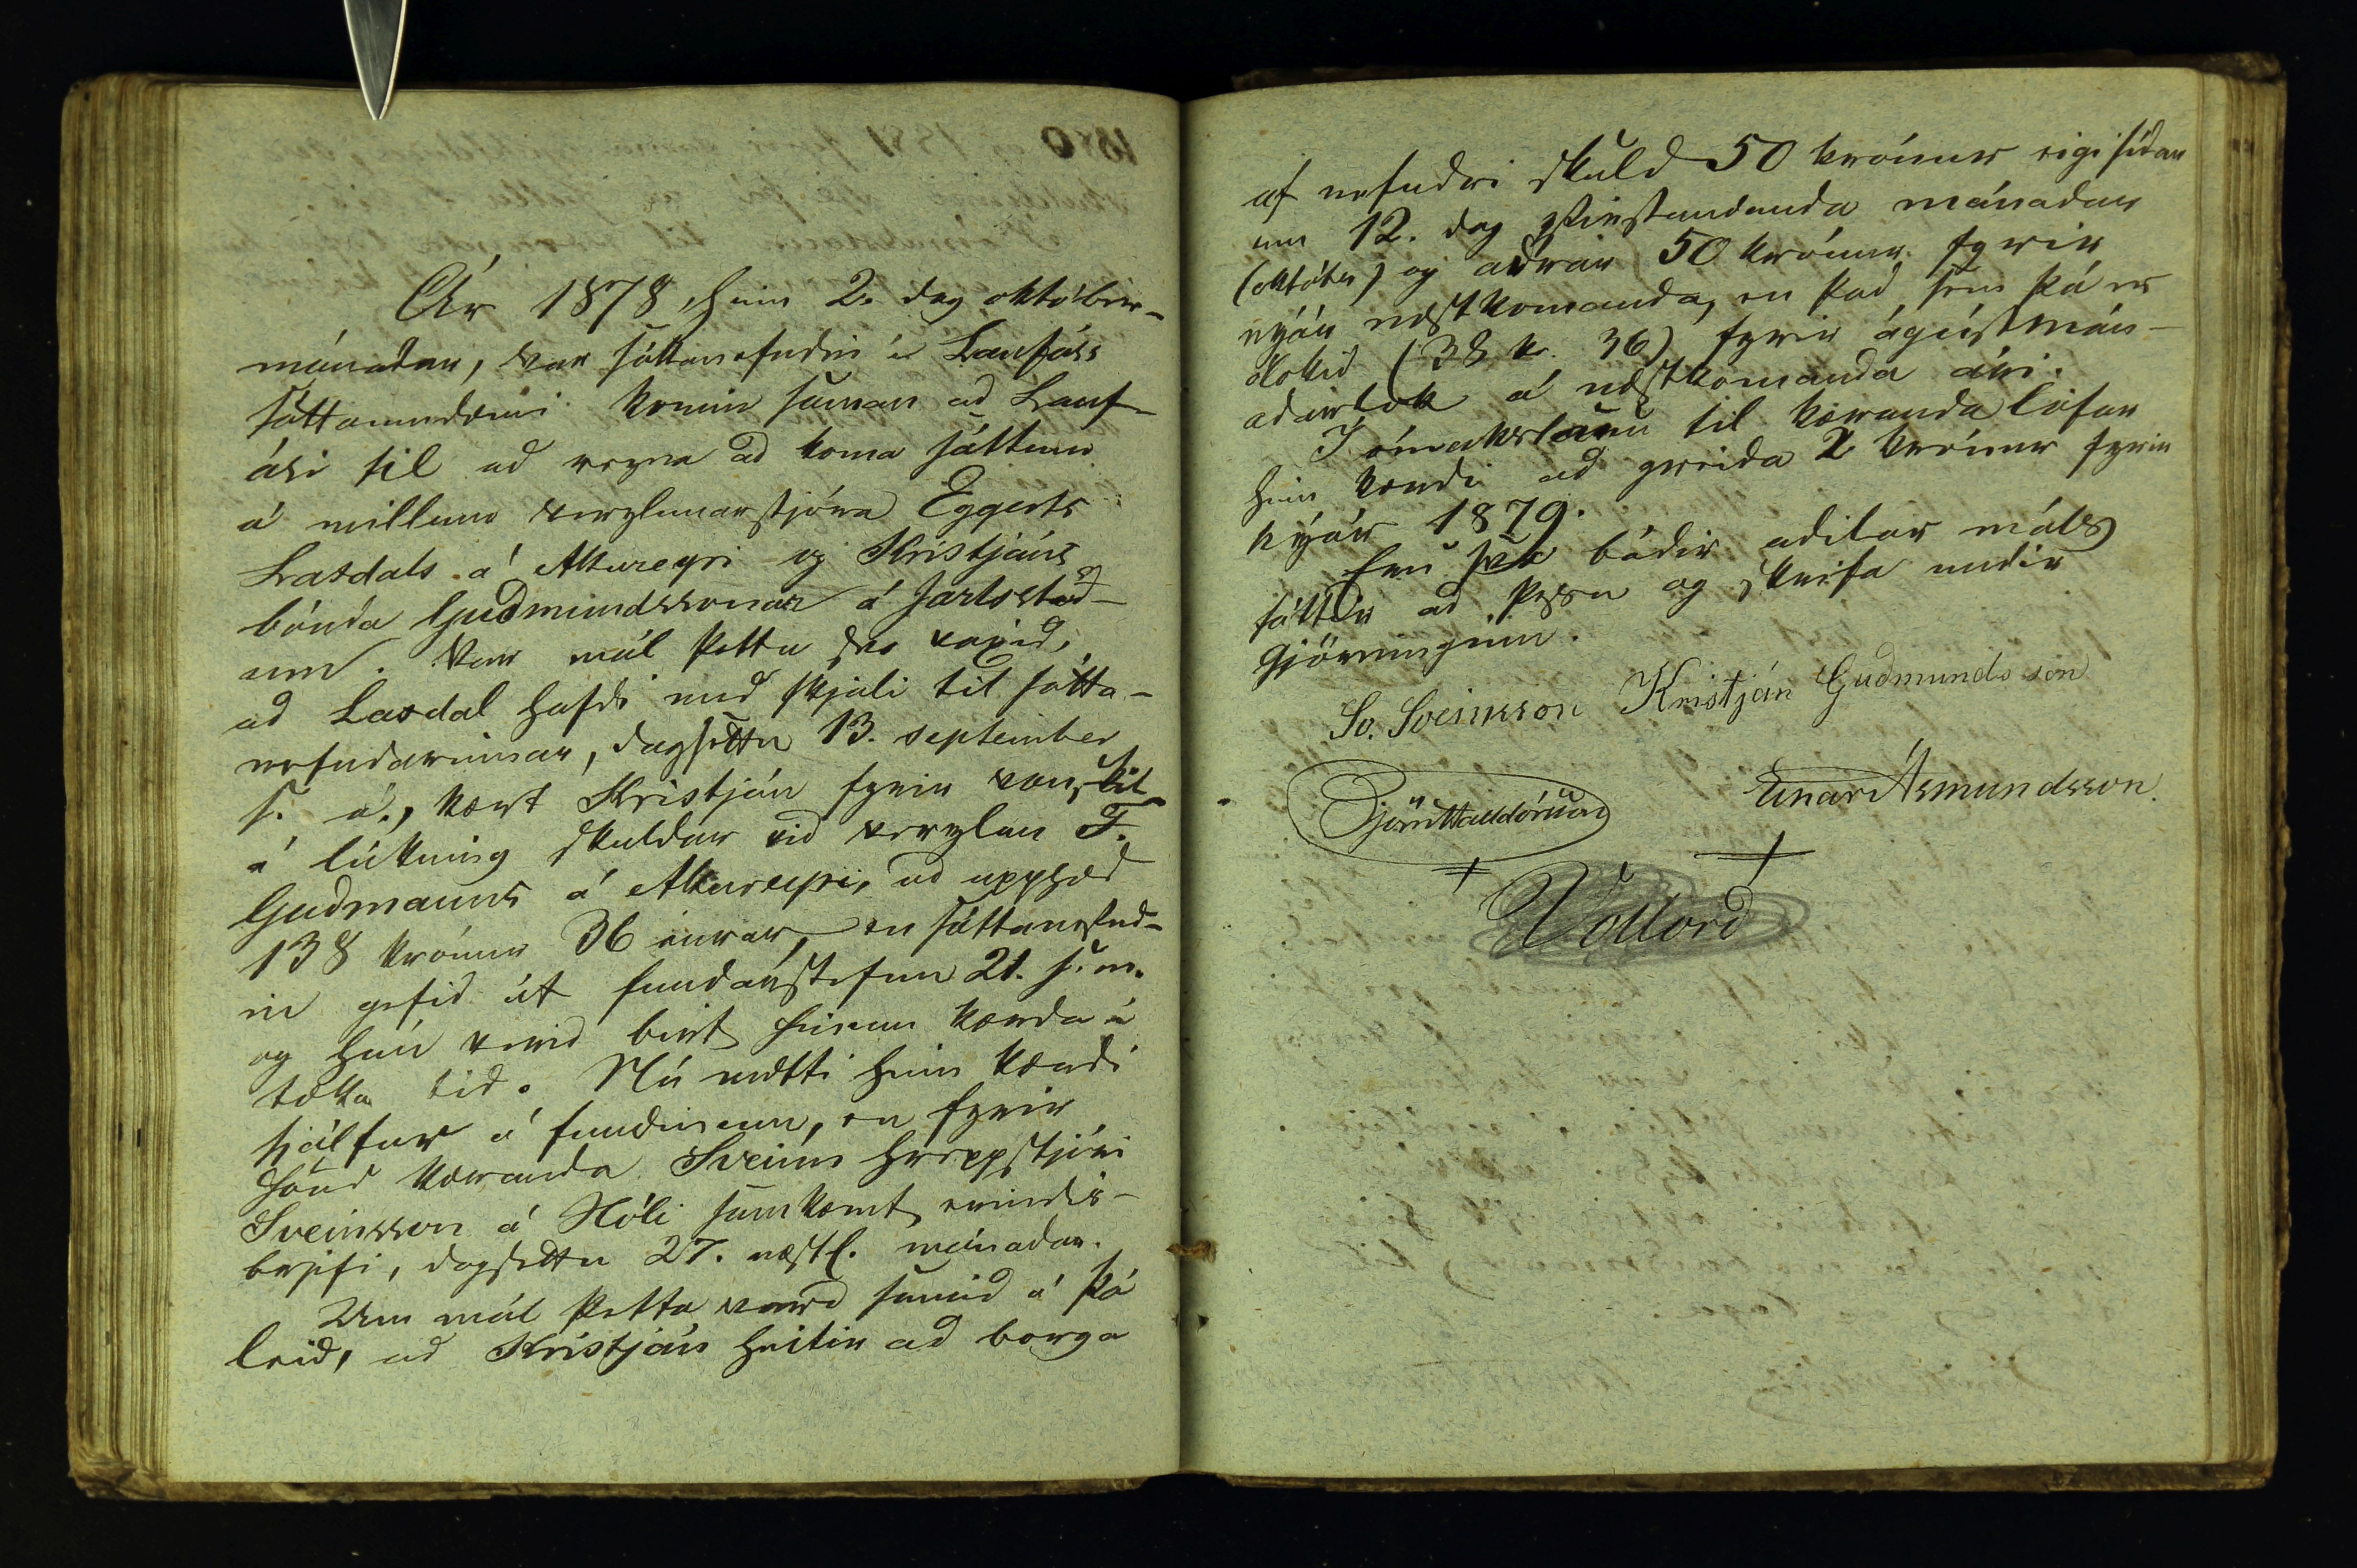 Ár 1878, hinn 2. dag október-
mánadar, var sáttanefndin í Laufáss
sáttaumdæmi komin saman ad Lauf-
ási til ad reyna ad koma sáttum
á millum verzlunarstjóra Eggerts
Laxdals á Akureyri og Kristjáns
bónda Gudmundssonar á Jarlsstöd-
um. Var mál þetta svo vaxid,
ad Laxdal hafdi med skjali til sátta-
nefndarinnar, dagsettu 13. september
s. á., kært Kristján fyrir vanskil
á lúkning skuldar vid verzlun F.
Gudmanns á Akureyri, ad upphæd
138 krónur 36 aurar, en sáttanefnd-
in gefid út fundarstefnu 21. s. m.
og hún verid birt hinum kærda í
tæka tíd. Nú mætti hinn kærdi
sjálfur á fundinum, en fyrir
hönd kæranda Sveinn hreppstjóri
Sveinsson á Hóli samkvæmt erindis-
brjefi, dagsettu 27. næstl. mánadar.
Um mál þetta vard samid á þá
leid, ad Kristján heitir ad borga
af nefndri skuld 50 krónur eigi sídar
en 12. dag yfirstandanda mánadar
(október) og adrar 50 krónur fyrir
nýár næstkomanda, en það, sem þá er
ólokid (38 kr. 36) fyrir ágústmán-
adarlok á næstkomanda ári.
Í ómakslaun til kæranda lofar
hinn kærdi ad greida 2 krónur fyrir
nýár 1879.
Eru svo bádir adilar máls
sáttir ad þessu og skrifa undir
gjörninginn.
Sv. Sveinsson Kristján Guðmundsson
Björn Halldórsson Einar Ásmundsson
Vottord